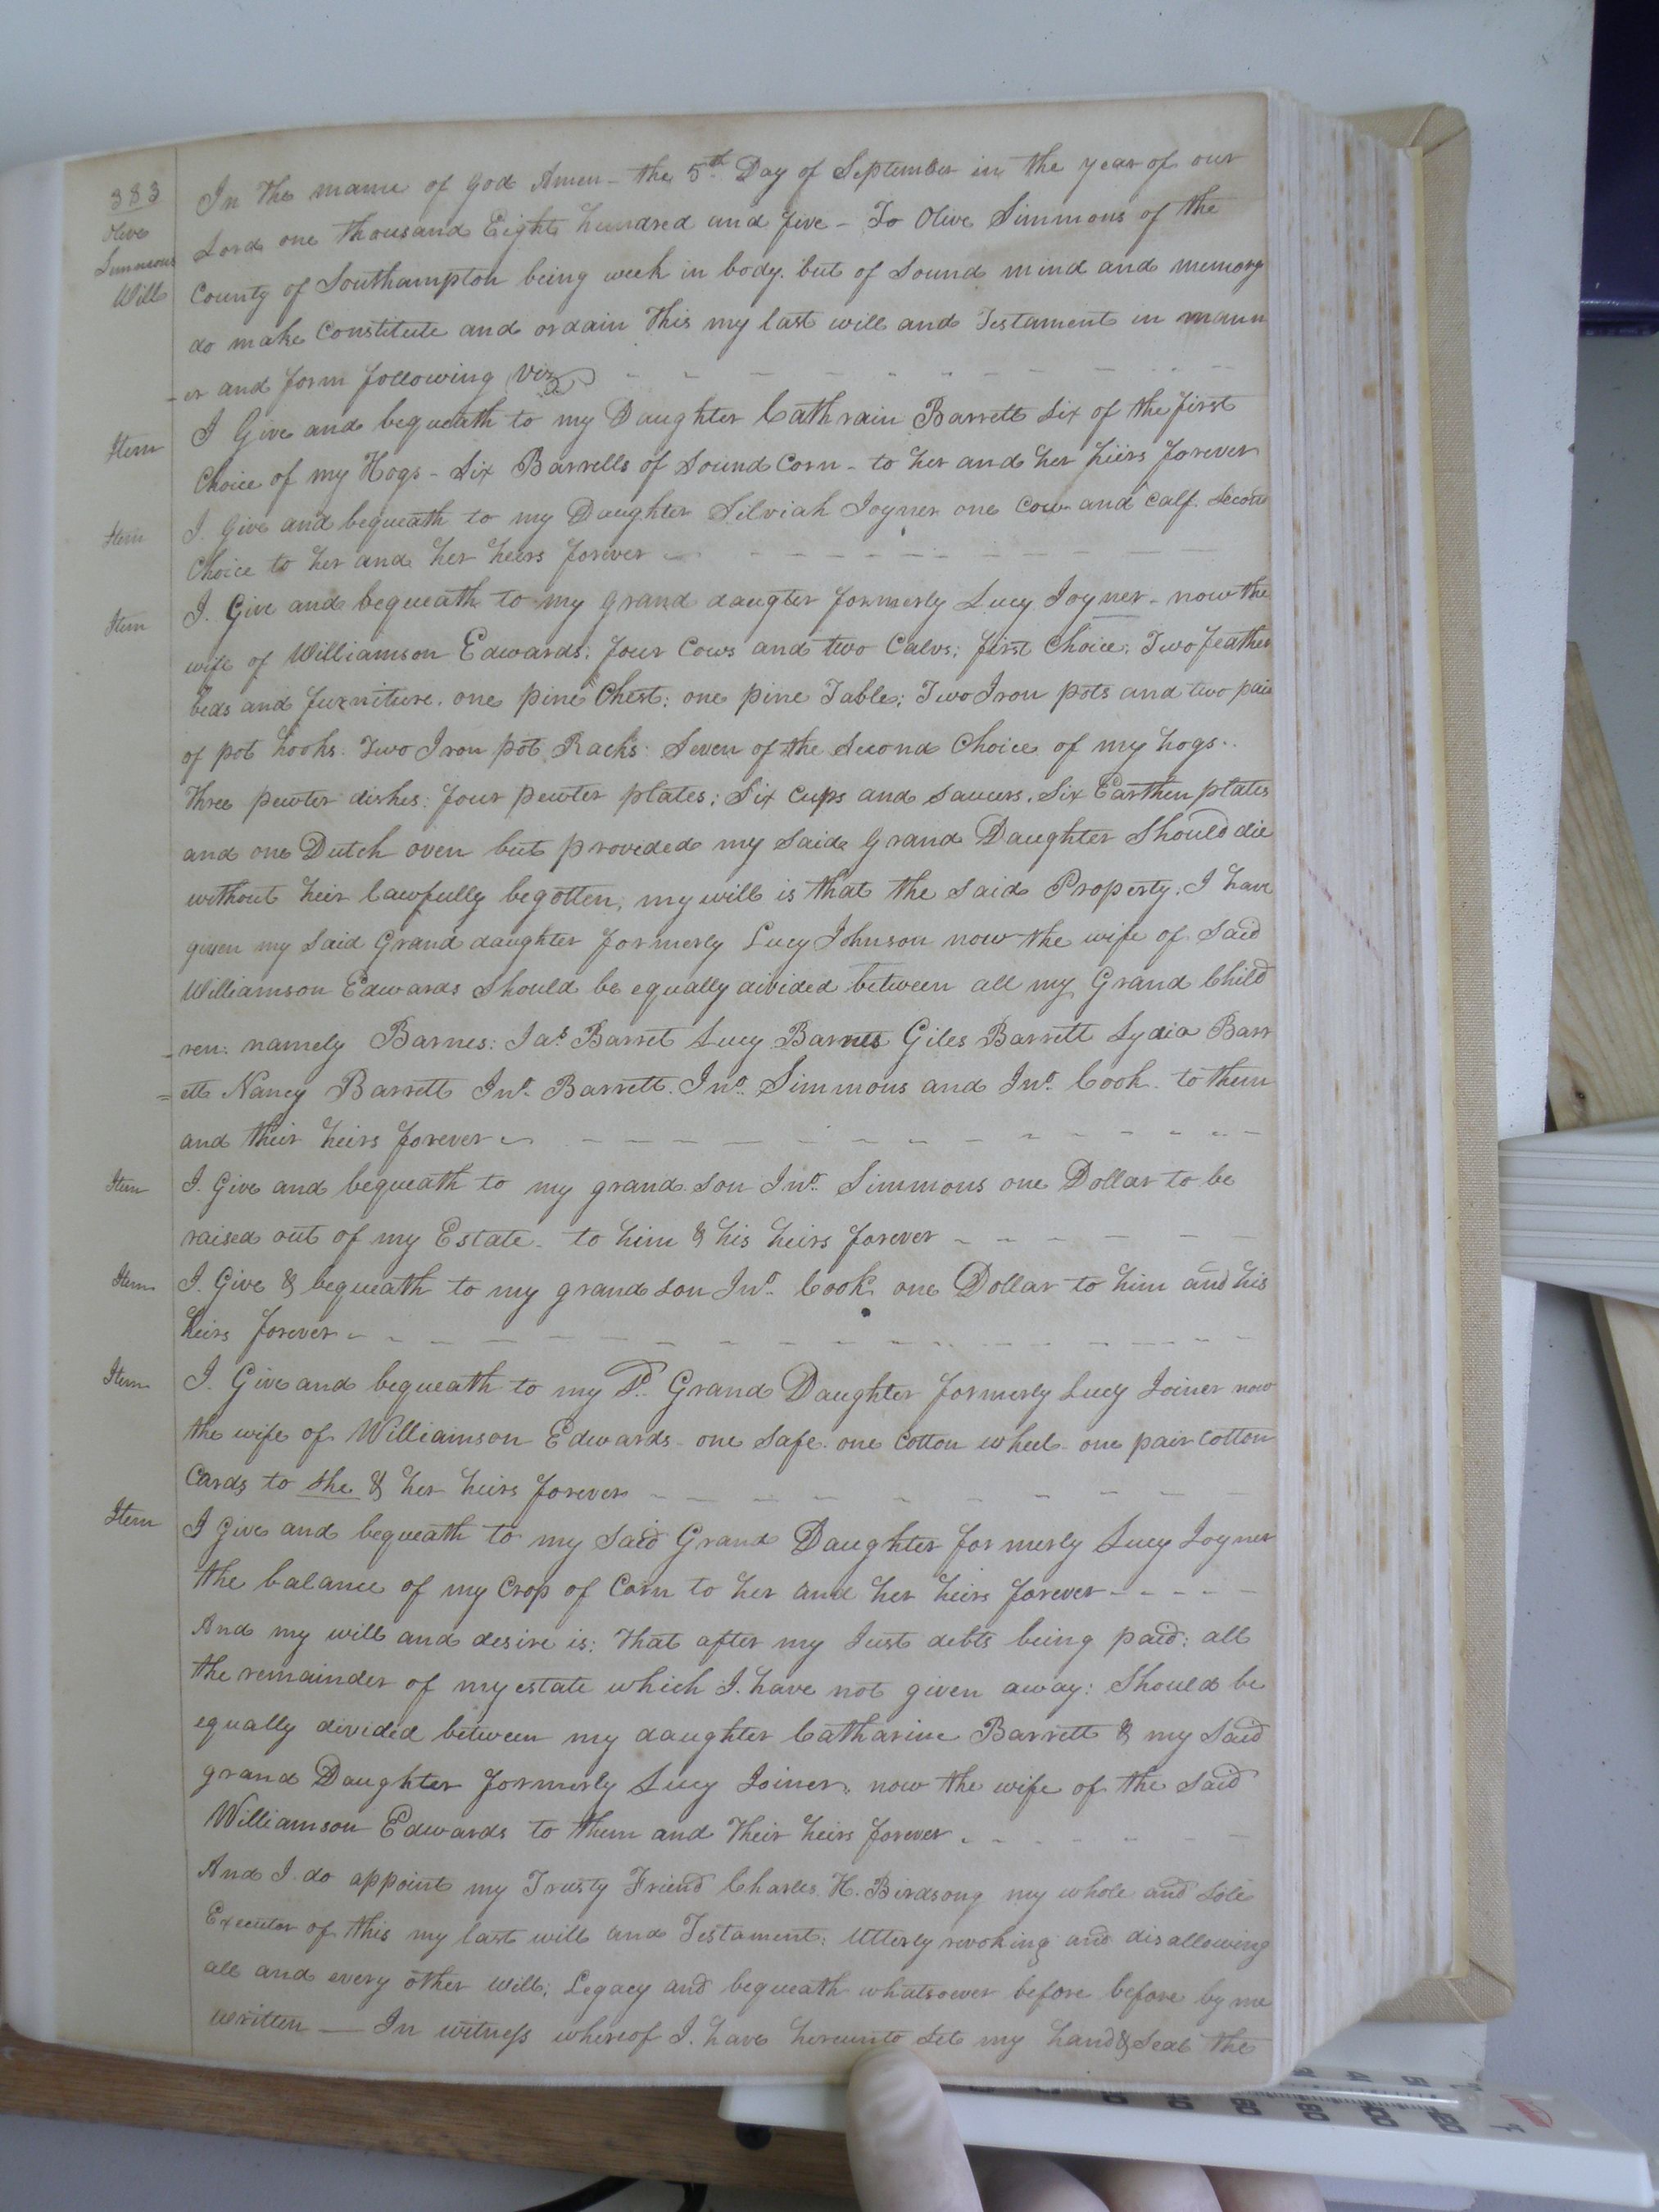 383
Olive
Simmons
Will
In the mame of God Amen - the 5th Day of September in the year of our
Lord one thousand Eight hundred and five - To Olive Simmons of the
County of Southampton being week in body. but of sound mind and memory
do make Constitute and ordain This my last will and Testament in mann
-er and form following Viz
Item I Give and bequeath to my Daughter Cathrain Barrett six of the first
Choice of my Hogs - six Barrells of sound Corn - to her and her hiirs forever
Item I. Give and bequeath to my Daughter Silviah Joyner one Cow and Calf. second
Choice to her and her heirs forever
Item I. Give and bequeath to my grand daugter formerly Lucy Joyner - now the
wife of Williamson Edwards; four Cows and two Calvs; first Choice; Two feather
beds and furniture. one pine Chest; one pine Table; Two Iron pots and two pair
of pot hooks. Two Iron pot Racks: Seven of the Second Choice of my hogs..
three pewter dishes: four pewter plates; Six Cups and saucers. Six Earthen plates
and one Dutch oven but proveded my said Grand Daughter should die
without heir lawfully begotten, my will is that the said Property. I have
given my said Grand daughter formerly Lucy Johnson now the wife of said
Williamson Edwards should be equally divided between all my Grand Child
-ren: namely Barnes: Jas Barret Lucy Barnes Giles Barrett Lydia Barr
=ett Nancy Barrett Jno. Barrett. Jno. Simmons and Jno. Cook. to them
and their heirs forever
Item I. Give and bequeath to my grand son Jno. Simmons one Dollar to be
raised out of my Estate - to him & his heirs forever
Item I. Give & bequeath to my grand son Jno. Cook one Dollar to him and his
heirs forever
Item I. Give and bequeath to my Sd. Grand Daughter formerly Lucy Joiner now
the wife of Williamson Edwards - one safe. one Cotton wheel - one pair Cotton
Cards to she & her heirs forever
Item I Give and bequeath to my said Grand Daughter formerly Lucy Joyner
the balance of my Crop of Corn to her and her heirs forever
And my will and desire is: that after my Just debts being paid; all
the remainder of my estate which I. have not given away: Should be
equally divided between my daughter Catharine Barrett & my said
grand Daughter formerly Lucy Joiner, now the wife of the said
Williamson Edwards to them and Their heirs forever.
And I. do appoint my Trusty Friend Charles. H. Birdsong my whole and sole
Executor of this my last will and Testament: Utterly revoking and disallowing
all and every other Will; Legacy and bequeath whatsoever before before by me
written — In witness whereof I. have hereunto set my hand & Seal the